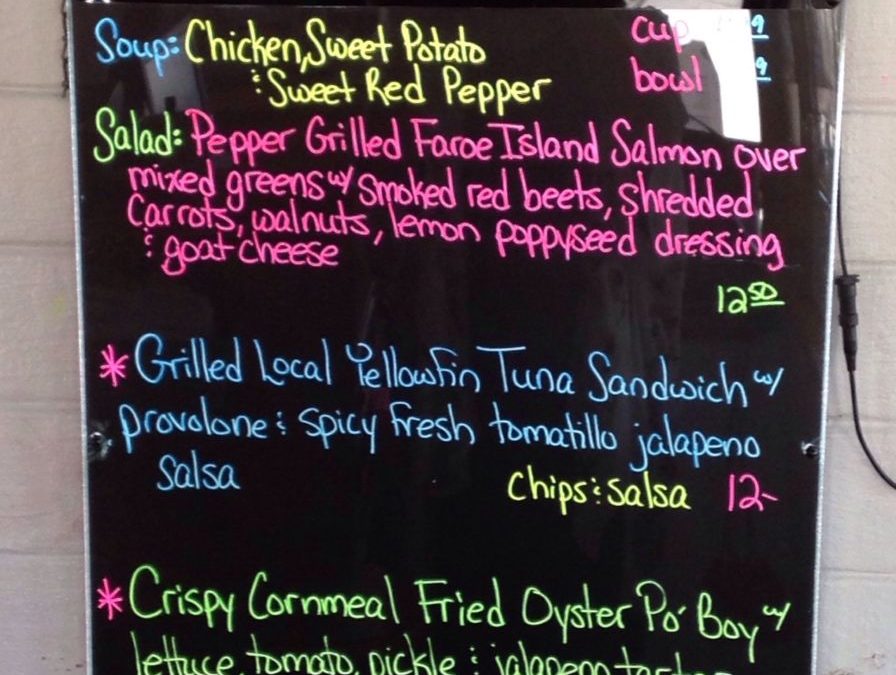 Soup: Chicken, Sweet Potato cup
& Sweet Red Pepper bowl
Salad: Pepper Grilled Faroe Island Salmon over
mixed greens w/ smoked red beets, shredded
Carrots, walnuts, lemon poppyseed dressing
& goat cheese
12 50
* Grilled Local Yellowfin Tuna Sandwich w/
provolone & spicy fresh tomatillo jalapeno
Salsa
Chips & salsa 12-
* Crispy Cornmeal Fried Oyster Po' Boy w/
lettuce, tomato, pickle & jalapeno tartar